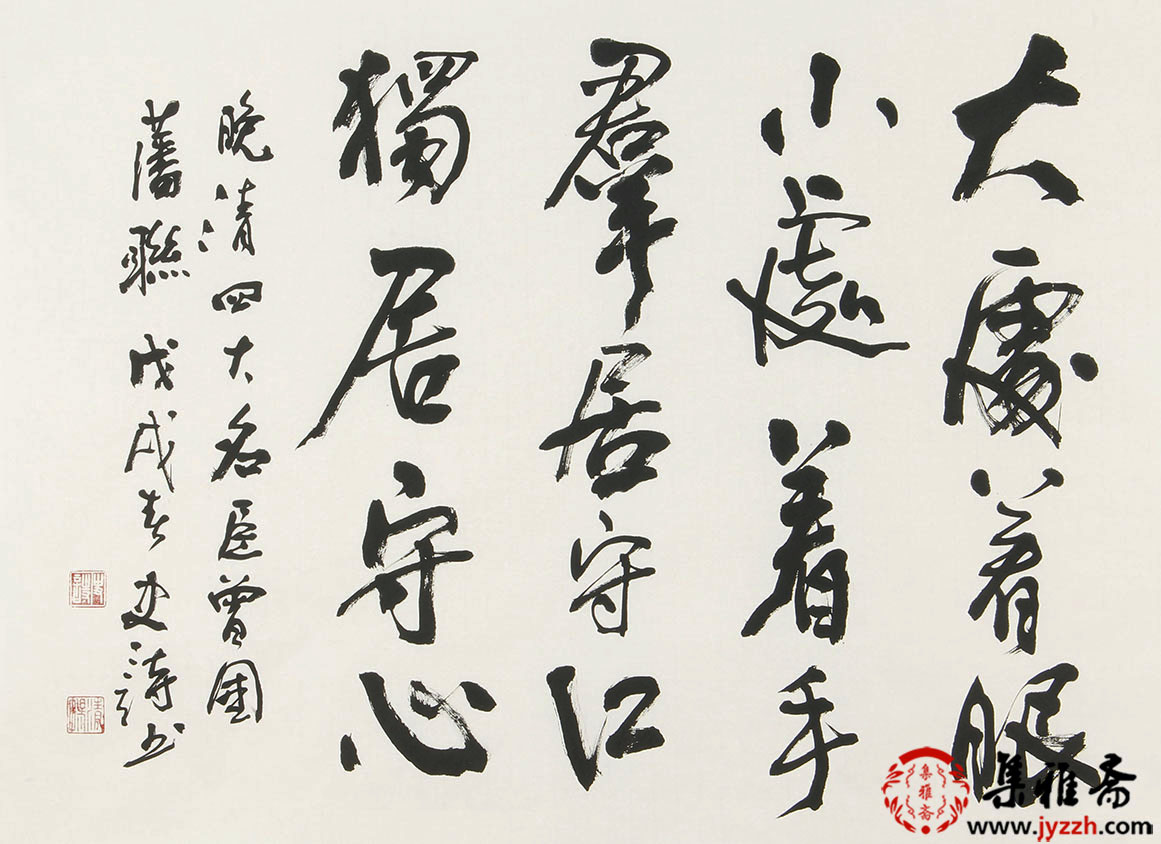 大處着眼
小處着手
羣居守口
獨居守心
晚清四大名臣曾國
藩聯 戊戌春 书
集雅斋
集雅斋
www.jyzzh.com